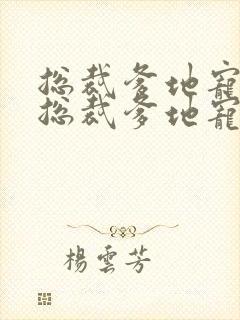 总裁爹地寵
总裁爹地寵
楊雲芳